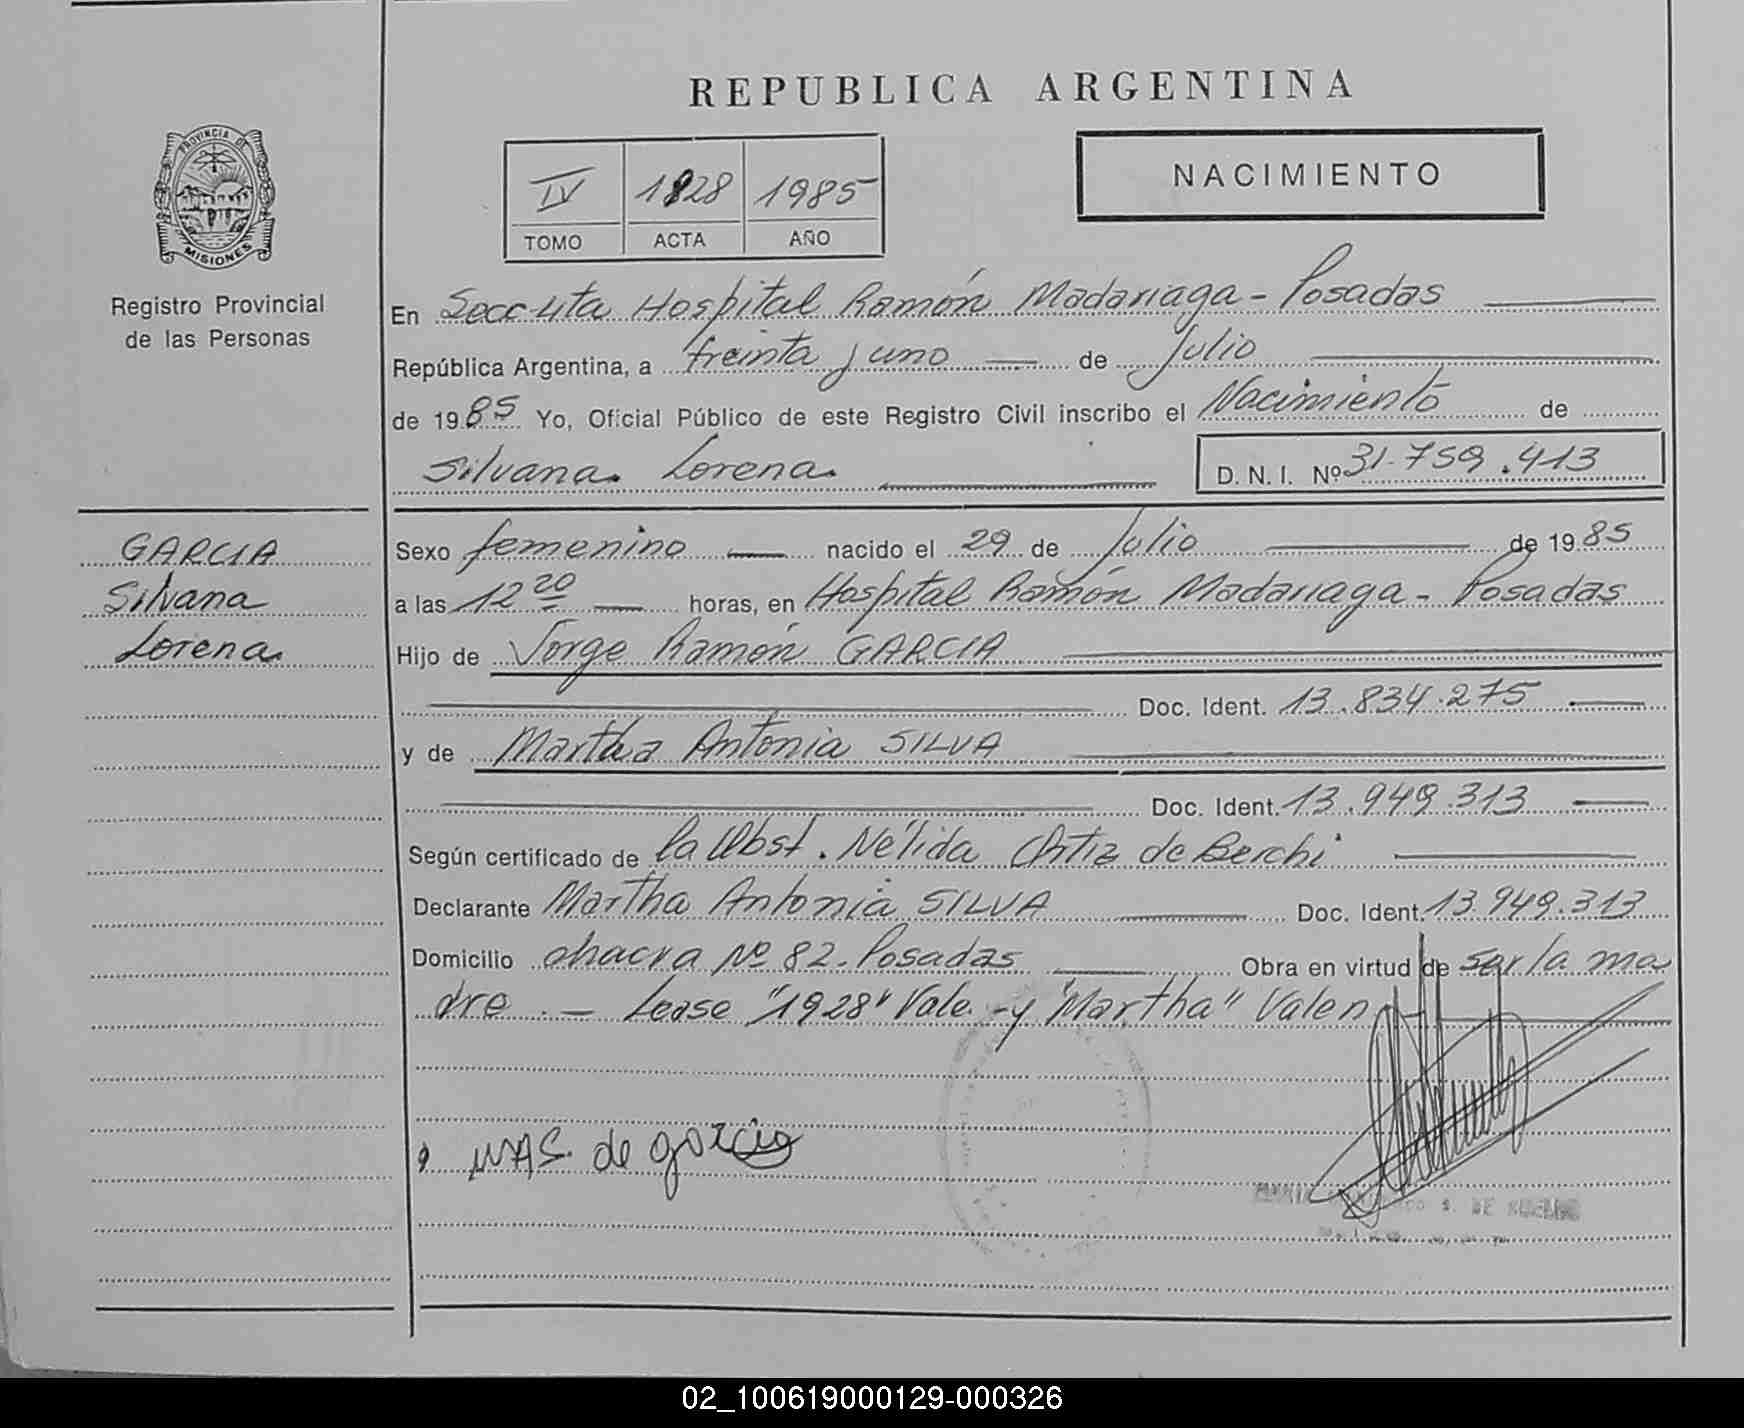 REPUBLICA ARGENTINA
PROVINCIA DE
MISIONES
Registro Provincial
de las Personas
IV 1928 1985
TOMO ACTA AÑO
NACIMIENTO
En Secc 4ta Hospital Ramón Madariaga - Posadas
República Argentina, a treinta y uno de Julio
de 1985 Yo, Oficial Público de este Registro Civil inscribo el Nacimiento de
Silvana Lorena D. N. I. Nº 31.759.413
GARCIA
Silvana
Lorena
Sexo femenino nacido el 29 de Julio de 1985
a las 12 20 horas, en Hospital Ramón Madariaga - Posadas
Hijo de Jorge Ramón GARCIA
Doc. Ident. 13.834.275
y de Martha Antonia SILVA
Doc. Ident. 13.949.313
Según certificado de la Obst. Nélida Ortiz de Berchi
Declarante Martha Antonia SILVA Doc. Ident. 13.949.313
Domicilio chacra Nº 82. Posadas Obra en virtud de ser la ma
dre . - Lease "1928" Vale - y "Martha" Valen
MAS. de garcia
S. DE
02_100619000129-000326